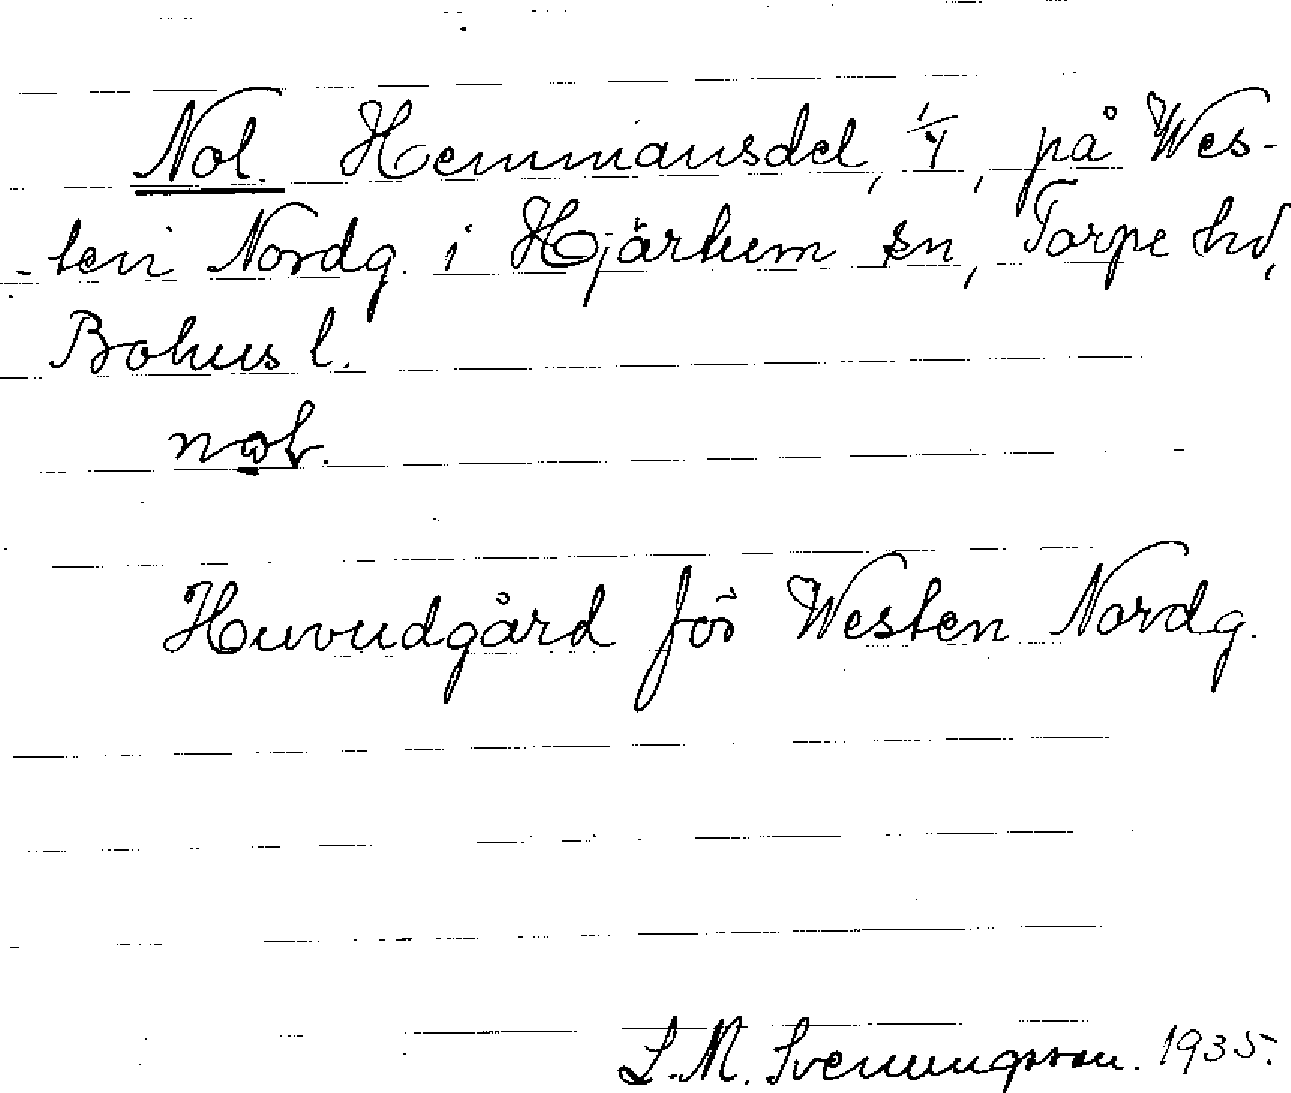 Nol. Hemmansdel, 1/4, på Wes-
-ten Nordg. i Hjärtum sn, Torpe hd,
Bohus l.
Huvudgård för Westen Nordg.
L. M. Svenungsson. 1935.